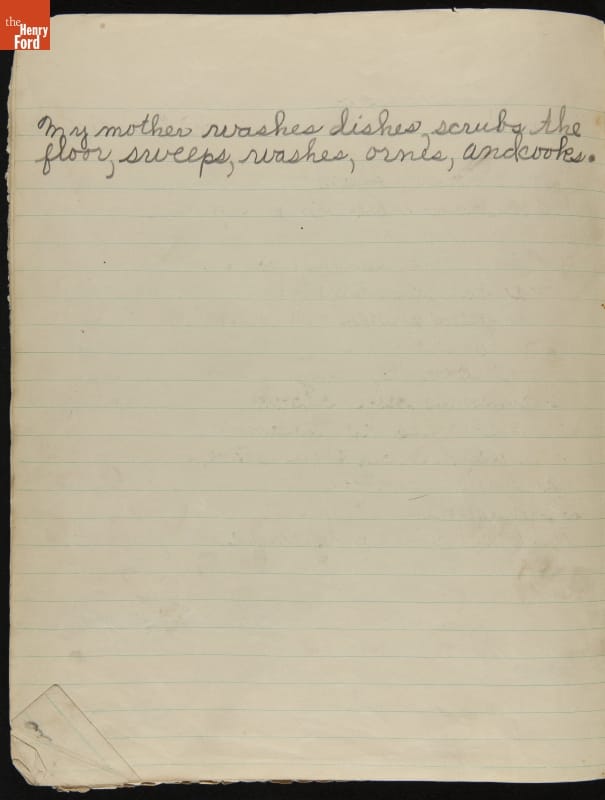 the
Henry
Ford
My mother washes dishes, scrubs the
floor, sweeps, washes, ornes, and cooks.